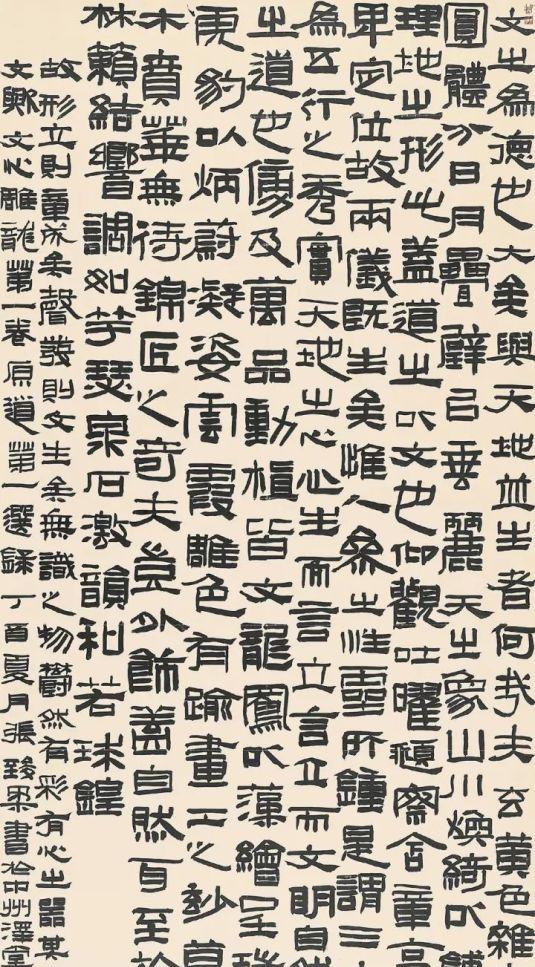 文之為德也大矣與天地並生者何哉夫玄黃色雜
圓體分日月疊璧以垂麗天之象山川煥綺以鋪
理地之形此蓋道之以文也仰觀吐曜頫察含章高
卑定位故兩儀既生矣惟人參之性靈所鍾是謂三
為五行之秀實天地之心心生而言立言立而文明自然
之道也傍及萬品動植皆文龍鳳以藻繪呈瑞
虎豹以炳蔚凝姿雲霞雕色有踰畫工之妙草
木賁華無待錦匠之奇夫豈外飾蓋自然耳至於
林籟結響調如竽瑟泉石激韻和若球鍠
故形立則章成矣聲發則文生矣無識之物鬱然有彩有心之器其
文歟文心雕龍第一卷原道第一選錄丁酉夏月張書於中州澤堂